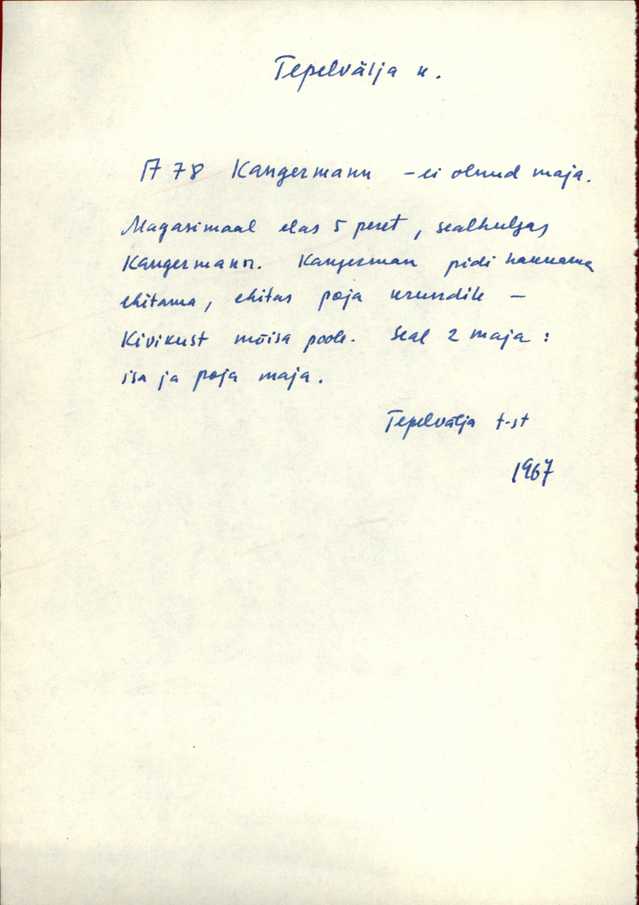 Tepelvälja k.
A 78 Kangermann – ei olnud maja.
Magasimaal elas 5 peret, sealhulgas
Kangermann. Kangerman pidi hakkama
ehitama, ehitas poja krundile –
Kivikust mõisa poole. Seal 2 maja:
isa ja poja maja.
Tepelvälja t-st
1967